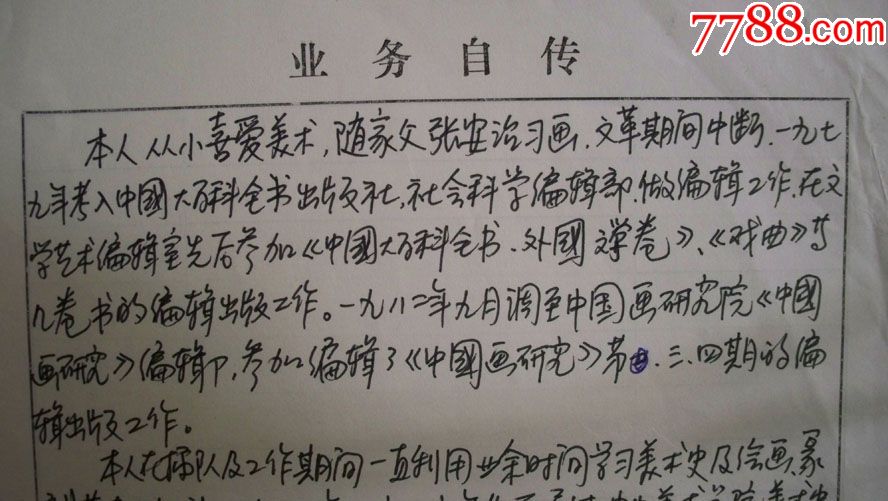 7788.com
业务自传
本人从小喜爱美术，随家父张安治习画，文革期间中断，一九七
九年考入中國大百科全书出版社，社会科学编辑部，做编辑工作，在文
学艺术编辑室先后参加《中國大百科全书·外國文学卷》、《戏曲》等
几卷书的编辑出版工作。一九八二年九月调至中国画研究院《中國
画研究》编辑部，参加编辑了《中國画研究》第 三、四期的编
辑出版工作。
本人在插队及工作期间一直利用业余时间学习美术史及绘画，